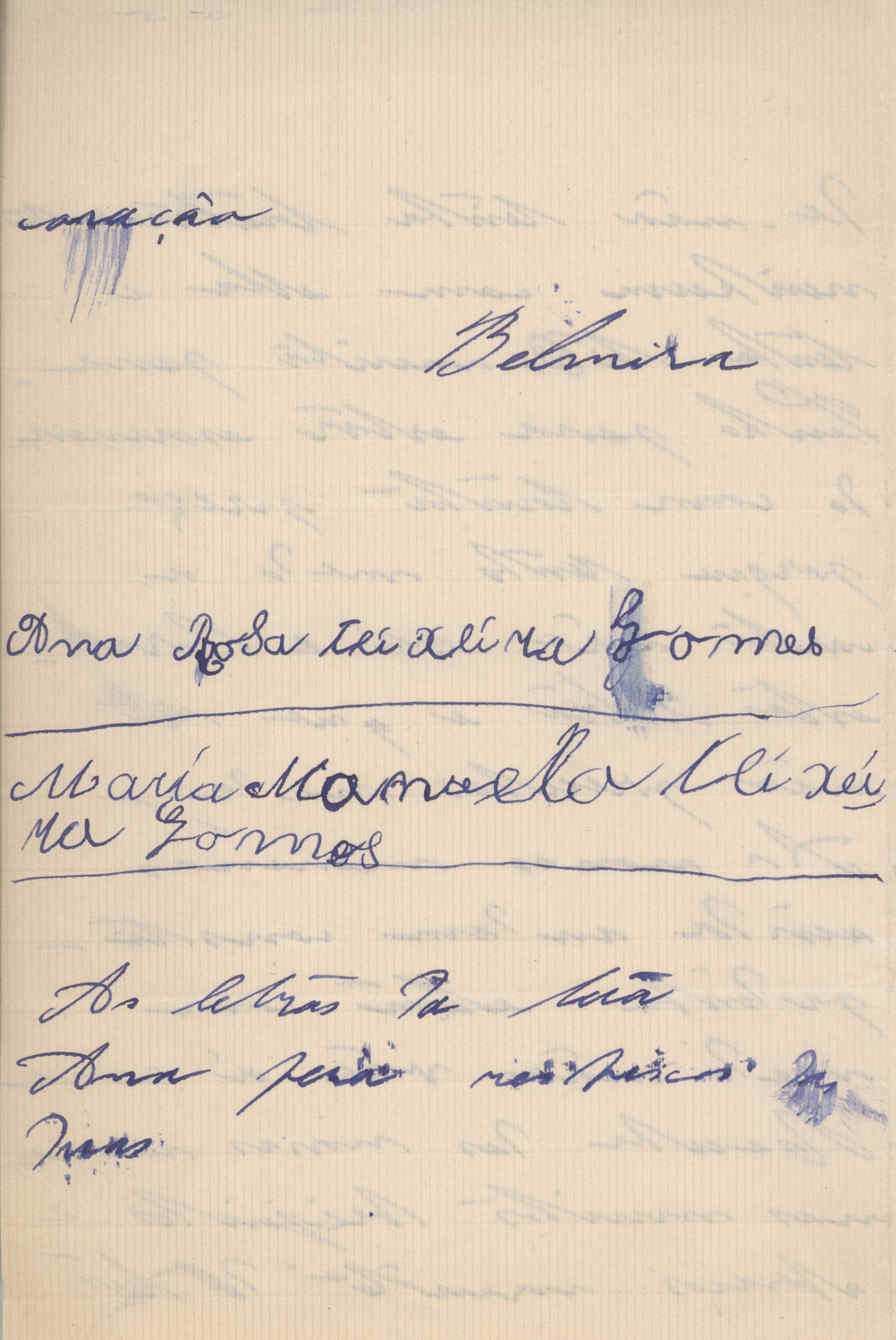 coração
Belmira
Ana Rosa Teixeira Gomes
Maria Manuella Teixei
ra Gomes
As letras da tua
Ana para
duas